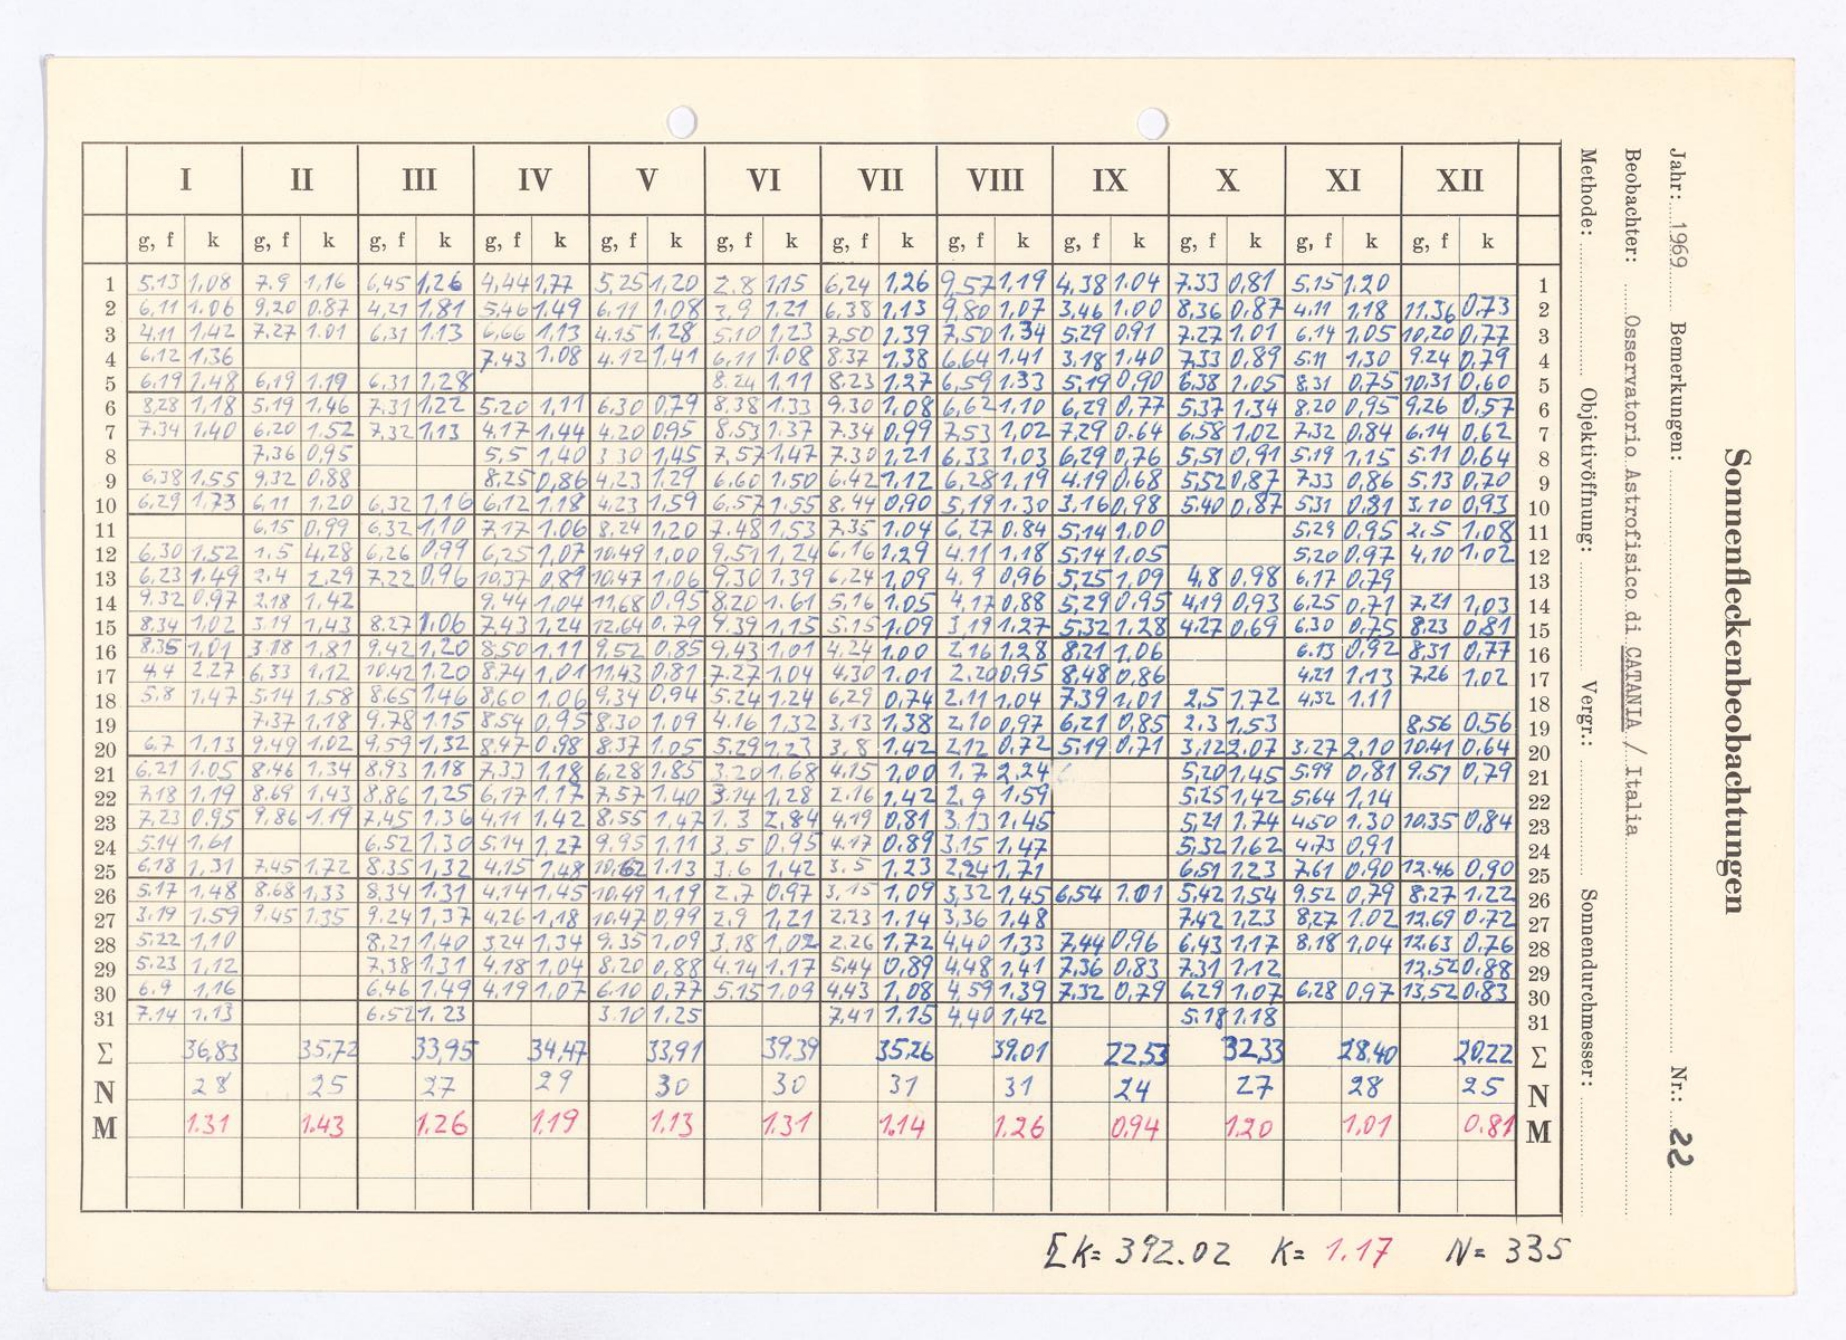 Sonnenfleckenbeobachtungen
Jahr: 1969 Bemerkungen: Nr.: 22
Beobachter: Osservatorio Astrofisico di CATANIA / Italia
Methode: Objektivöffnung: Vergr.: Sonnendurchmesser:
I II III IV V VI VII VIII IX X XI XII
g, f k g, f k g, f k g, f k g, f k g, f k g, f k g, f k g, f k g, f k g, f k g, f k
1 5.13 1,08 7.9 1,16 6,45 1,26 4,44 1,77 5,25 1,20 2.8 1,15 6,24 1,26 9,57 1,19 4,38 1.04 7.33 0,81 5.15 1.20 1
2 6,11 1.06 9,20 0.87 4,21 1,81 5.46 1,49 6.11 1.08 3,9 1.21 6.38 1,13 9,80 1,07 3,46 1.00 8,36 0,87 4,11 1,18 11.36 0.73 2
3 4,11 1,42 7,27 1.01 6,31 1.13 6,66 1,13 4.15 1,28 5,10 1,23 7,50 1,39 7,50 1,34 5,29 0,91 7,27 1,01 6,14 1,05 10,20 0,77 3
4 6,12 1,36 7.43 1.08 4.12 1,41 6,11 1.08 8.37 1,38 6,64 1,41 3,18 1,40 7,33 0,89 5.11 1,30 9.24 0,79 4
5 6.19 1,48 6,19 1.19 6,31 1,28 8.24 1,11 8.23 1,27 6,59 1.33 5,19 0,90 6.38 1,05 8,31 0,75 10,31 0,60 5
6 8,28 1,18 5.19 1,46 7,31 1,22 5.20 1,11 6.30 0,79 8.38 1.33 9.30 1,08 6,62 1,10 6,29 0,77 5,37 1,34 8.20 0,95 9,26 0,57 6
7 7.34 1,40 6.20 1.52 7,32 1,13 4.17 1,44 4.20 0,95 8.53 1.37 7.34 0,99 7,53 1,02 7,29 0.64 6.58 1,02 7,32 0,84 6,14 0,62 7
8 7,36 0,95 5,5 1,40 3.30 1,45 7,57 1,47 7.30 1,21 6,33 1,03 6,29 0,76 5,51 0,91 5,19 1,15 5.11 0,64 8
9 6,38 1,55 9,32 0.88 8.25 0,86 4,23 1,29 6.60 1,50 6.42 1,12 6,28 1,19 4.19 0.68 5,52 0,87 7,33 0,86 5.13 0,70 9
10 6,29 1,73 6,11 1,20 6,32 1,16 6,12 1,18 4.23 1,59 6,57 1.55 8.44 0,90 5,19 1.30 3.16 0,98 5.40 0,87 5.31 0.81 3,10 0,93 10
11 6.15 0,99 6,32 1,10 7,17 1.06 8.24 1,20 7.48 1,53 7,35 1.04 6,27 0.84 5,14 1.00 5,29 0,95 2.5 1,08 11
12 6,30 1,52 1,5 4,28 6,26 0,99 6,25 1,07 10,49 1,00 9,51 1,24 6,16 1,29 4.11 1,18 5,14 1,05 5,20 0,97 4,10 1.02 12
13 6,23 1,49 2.4 2,29 7,22 0,96 10,37 0,89 10,47 1,06 9,30 1,39 6,24 1,09 4.9 0,96 5,25 1,09 4,8 0,98 6,17 0,79 13
14 9.32 0,97 2.18 1,42 9.44 1,04 11,68 0,95 8.20 1.61 5,16 1,05 4,17 0,88 5,29 0,95 4,19 0,93 6.25 0,71 7,21 1,03 14
15 8.34 1,02 3,19 1,43 8.27 1,06 7,43 1,24 12,64 0,79 9.39 1,15 5.15 1,09 3,19 1,27 5,32 1,28 4.27 0,69 6,30 0,75 8,23 0,81 15
16 8.35 1,01 3.18 1,81 9,42 1,20 8,50 1,11 9,52 0,85 9,43 1,01 4.24 1.00 2.16 1,28 8,21 1,06 6.13 0,92 8,31 0,77 16
17 4,4 2,27 6,33 1,12 10.42 1.20 8,74 1,01 11,43 0,81 7.27 1,04 4,30 1.01 2,20 0,95 8,48 0,86 4,21 1,13 7,26 1,02 17
18 5,8 1,47 5,14 1,58 8.65 1.46 8,60 1,06 9,34 0,94 5.24 1.24 6,29 0,74 2.11 1.04 7,39 1,01 2,5 1,72 4,32 1,11 18
19 7.37 1,18 9.78 1.15 8.54 0,95 8.30 1.09 4.16 1,32 3,13 1,38 2,10 0,97 6,21 0,85 2.3 1,53 8,56 0.56 19
20 6,7 1,13 9,49 1,02 9,59 1,32 8,47 0,98 8.37 1.05 5,29 1,23 3,8 1,42 2,12 0,72 5.19 0,71 3,12 2,07 3,27 2,10 10,41 0,64 20
21 6.21 1,05 8.46 1,34 8,93 1,18 7,33 1,18 6,28 1.85 3.20 1,68 4.15 1,00 1,7 2,24 5,20 1,45 5.99 0,81 9.51 0,79 21
22 7.18 1,19 8.69 1,43 8,86 1,25 6,17 1,17 7,57 1.40 3.14 1,28 2.16 1,42 2,9 1,59 5,25 1,42 5,64 1,14 22
23 7,23 0,95 9,86 1.19 7,45 1,36 4,11 1,42 8.55 1,47 1.3 2,84 4,19 0,81 3.13 1,45 5,21 1.74 4,50 1.30 10.35 0,84 23
24 5.14 1,61 6,52 1,30 5,14 1,27 9,95 1,11 3,5 0,95 4.17 0,89 3.15 1,47 5,32 1,62 4,73 0,91 24
25 6,18 1,31 7,45 1,72 8.35 1,32 4,15 1,48 10,62 1.13 3.6 1,42 3.5 1,23 2,24 1,71 6,51 1,23 7,61 0,90 12.46 0,90 25
26 5.17 1,48 8.68 1,33 8,34 1.31 4,14 1,45 10,49 1,19 2.7 0,97 3,15 1,09 3,32 1,45 6,54 1.01 5,42 1,54 9,52 0,79 8,27 1.22 26
27 3.19 1.59 9.45 1.35 9.24 1,37 4,26 1,18 10.47 0,99 2.9 1,21 2.23 1,14 3,36 1,48 7,42 1,23 8,27 1.02 12,69 0.72 27
28 5,22 1,10 8,21 1,40 3,24 1,34 9.35 1,09 3,18 1,02 2.26 1,72 4,40 1,33 7,44 0,96 6,43 1,17 8.18 1,04 12,63 0,76 28
29 5.23 1,12 7,38 1,31 4.18 1.04 8.20 0,88 4.14 1.17 5,44 0,89 4,48 1,41 7,36 0,83 7.31 1,12 12,52 0.88 29
30 6.9 1,16 6,46 1,49 4.19 1,07 6.10 0,77 5,15 1,09 4,43 1,08 4,59 1.39 7,32 0,79 6,29 1,07 6,28 0,97 13,52 0.83 30
31 7.14 1,13 6,52 1,23 3.10 1,25 7,41 1,15 4,40 1,42 5.18 1.18 31
Σ 36,83 35,72 33,95 34,47 33,91 39.39 35.26 39.01 22,53 32,33 28.40 20,22 Σ
N 28 25 27 29 30 30 31 31 24 27 28 25 N
M 1.31 1.43 1.26 1.19 1.13 1.31 1.14 1.26 0.94 1.20 1.01 0.81 M
Σk= 392.02 K= 1.17 N= 335